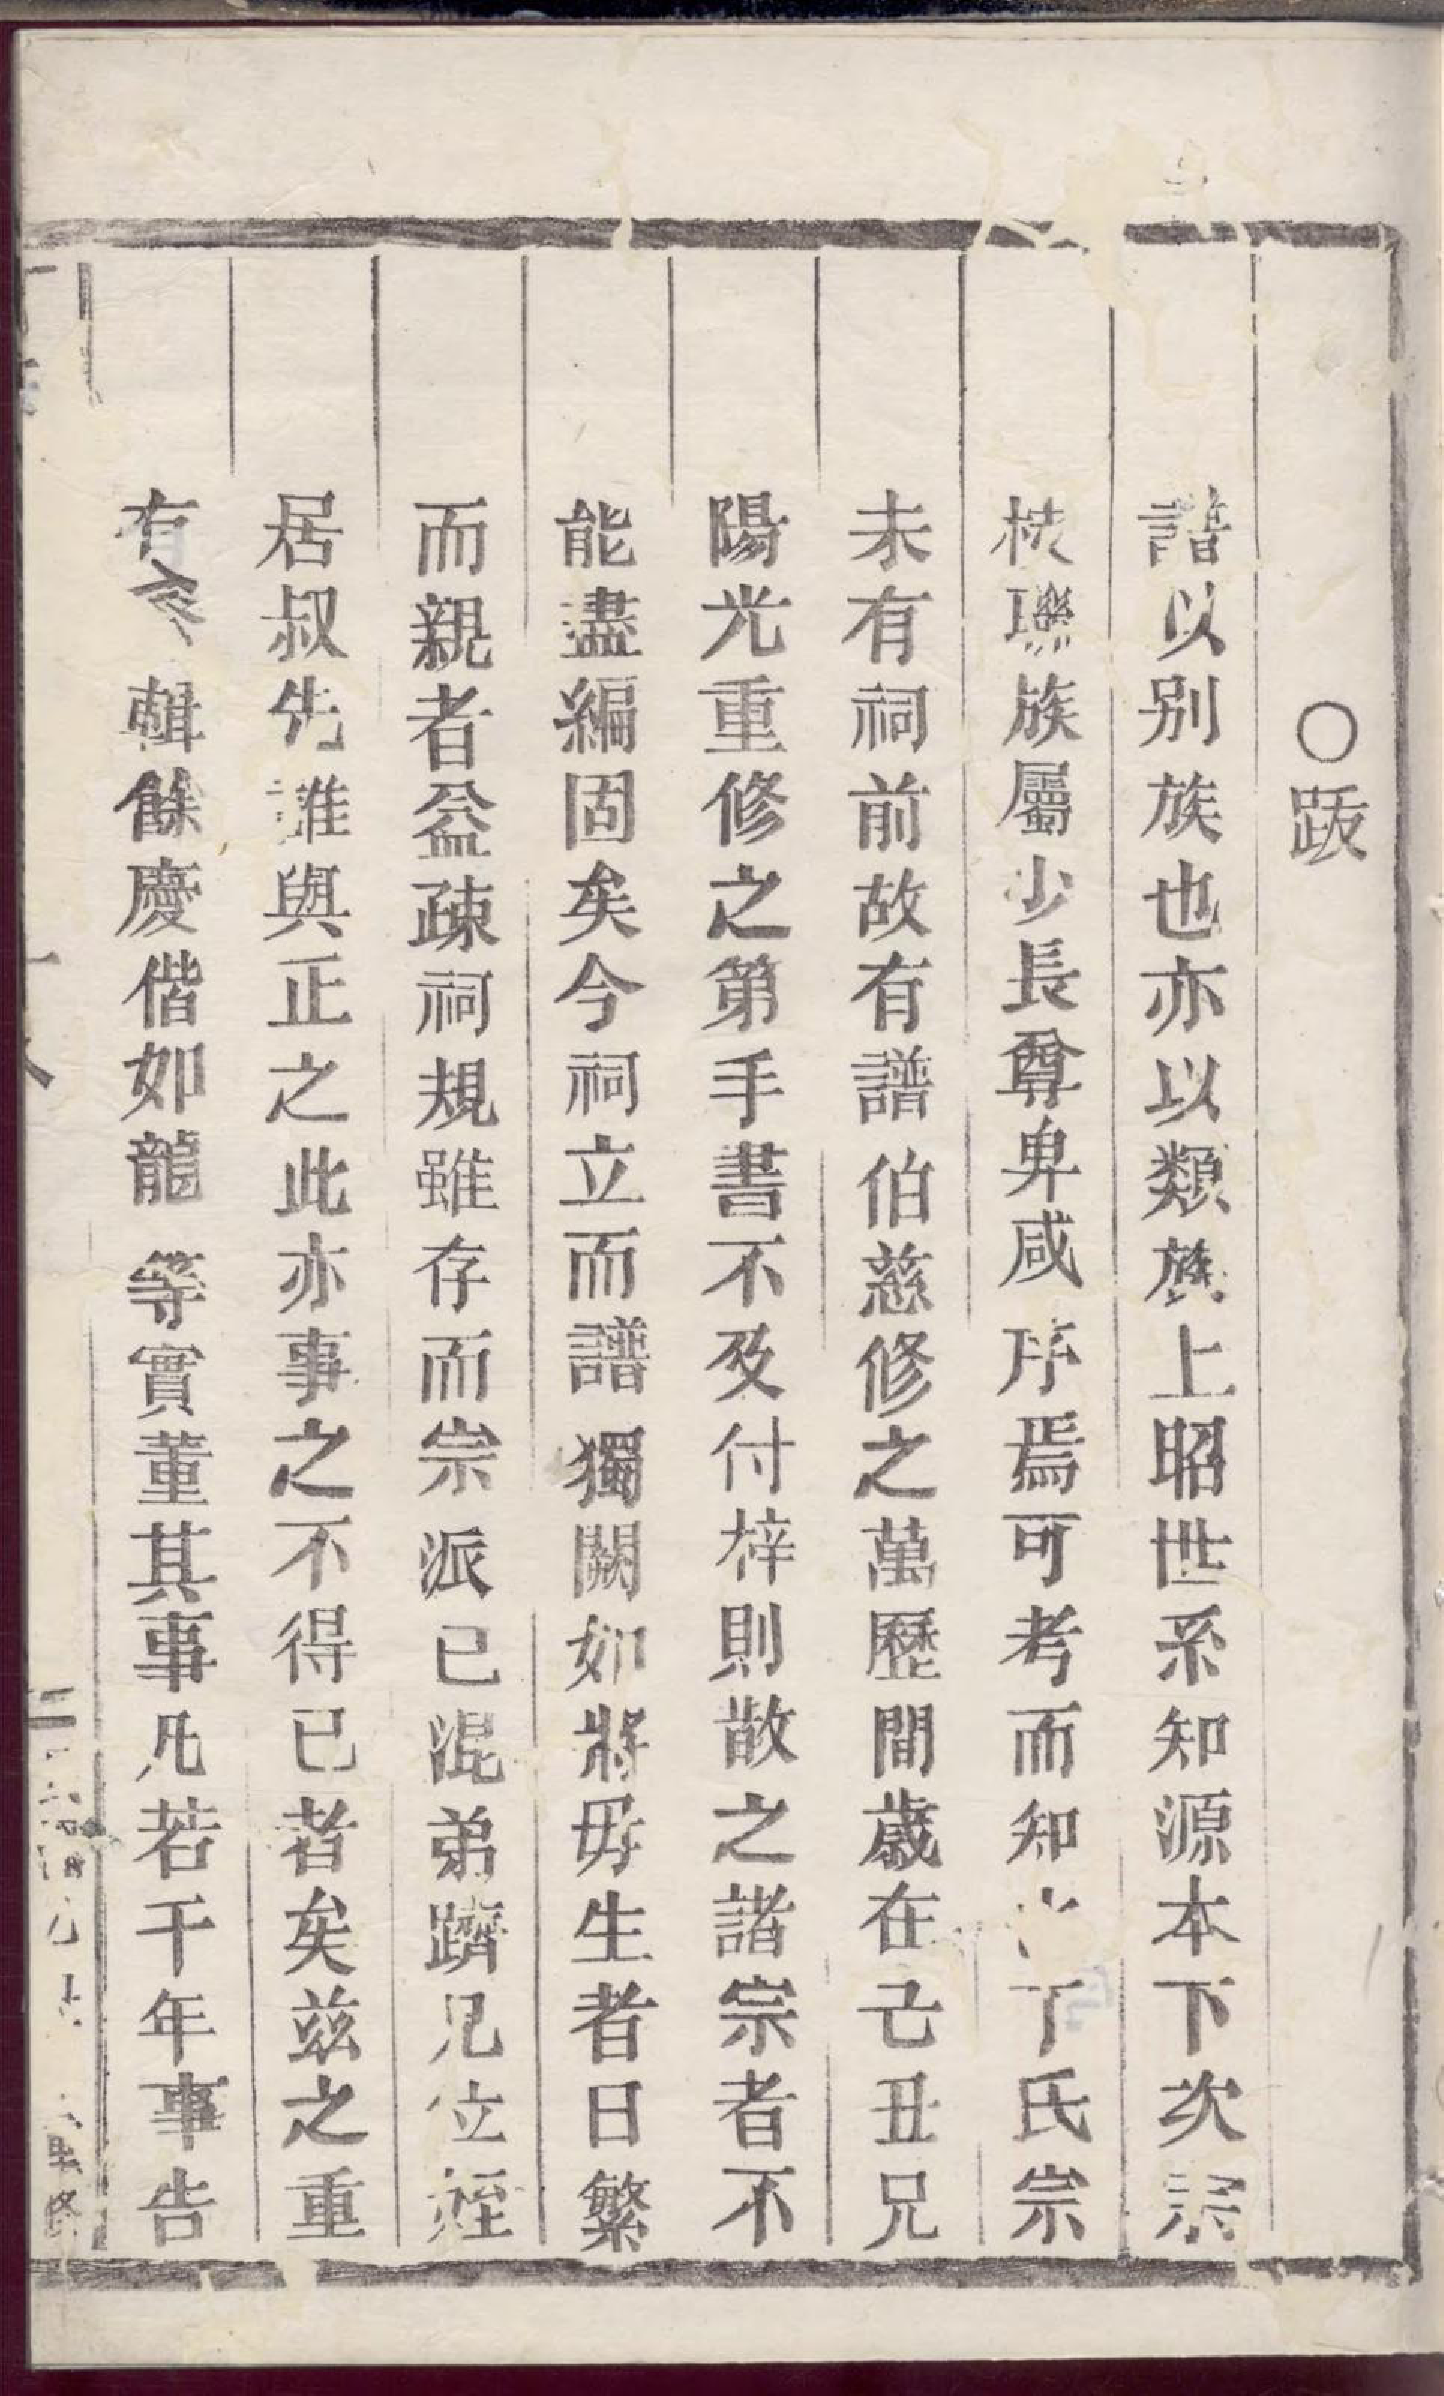 ○跋
譜以别族也亦以類族上昭世系知源本下次宗
枝聯族屬少長尊卑咸序焉可考而知丁氏宗
未有祠前故有譜伯慈修之萬歷間歲在乙丑兄
陽光重修之第手書不及付梓則散之諸宗者不
能盡編固矣今祠立而譜獨闕如將毋生者日繁
而親者益疎祠規雖存而宗派已混弟躋兄位姪
居叔先誰與正之此亦事之不得已者矣兹之重
有輯餘慶偕如龍等實董其事凡若干年事告